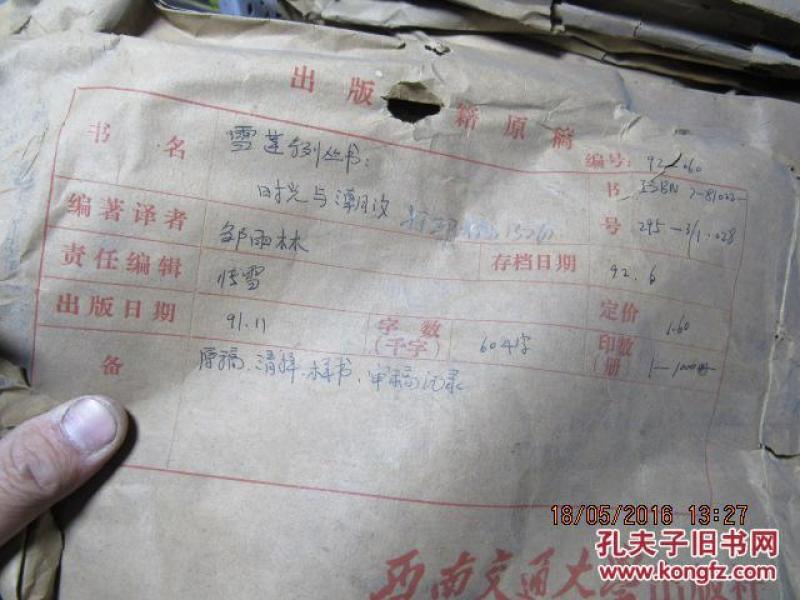 出版 籍原稿
编号: 92-060
书名 雪莲系列丛书:
时光与潮汐
书号 ISBN 7-81022-
295-3/I·028
编著译者 邹雨林
存档日期 92.6
责任编辑 雪
定价 1.60
出版日期 91.11
字数(千字) 60千字
印数(册 1-1000册
备 原稿、清样、样书、审稿记录
18/05/2016 13:27
西南交通大学出版社
孔夫子旧书网
www.kongfz.com